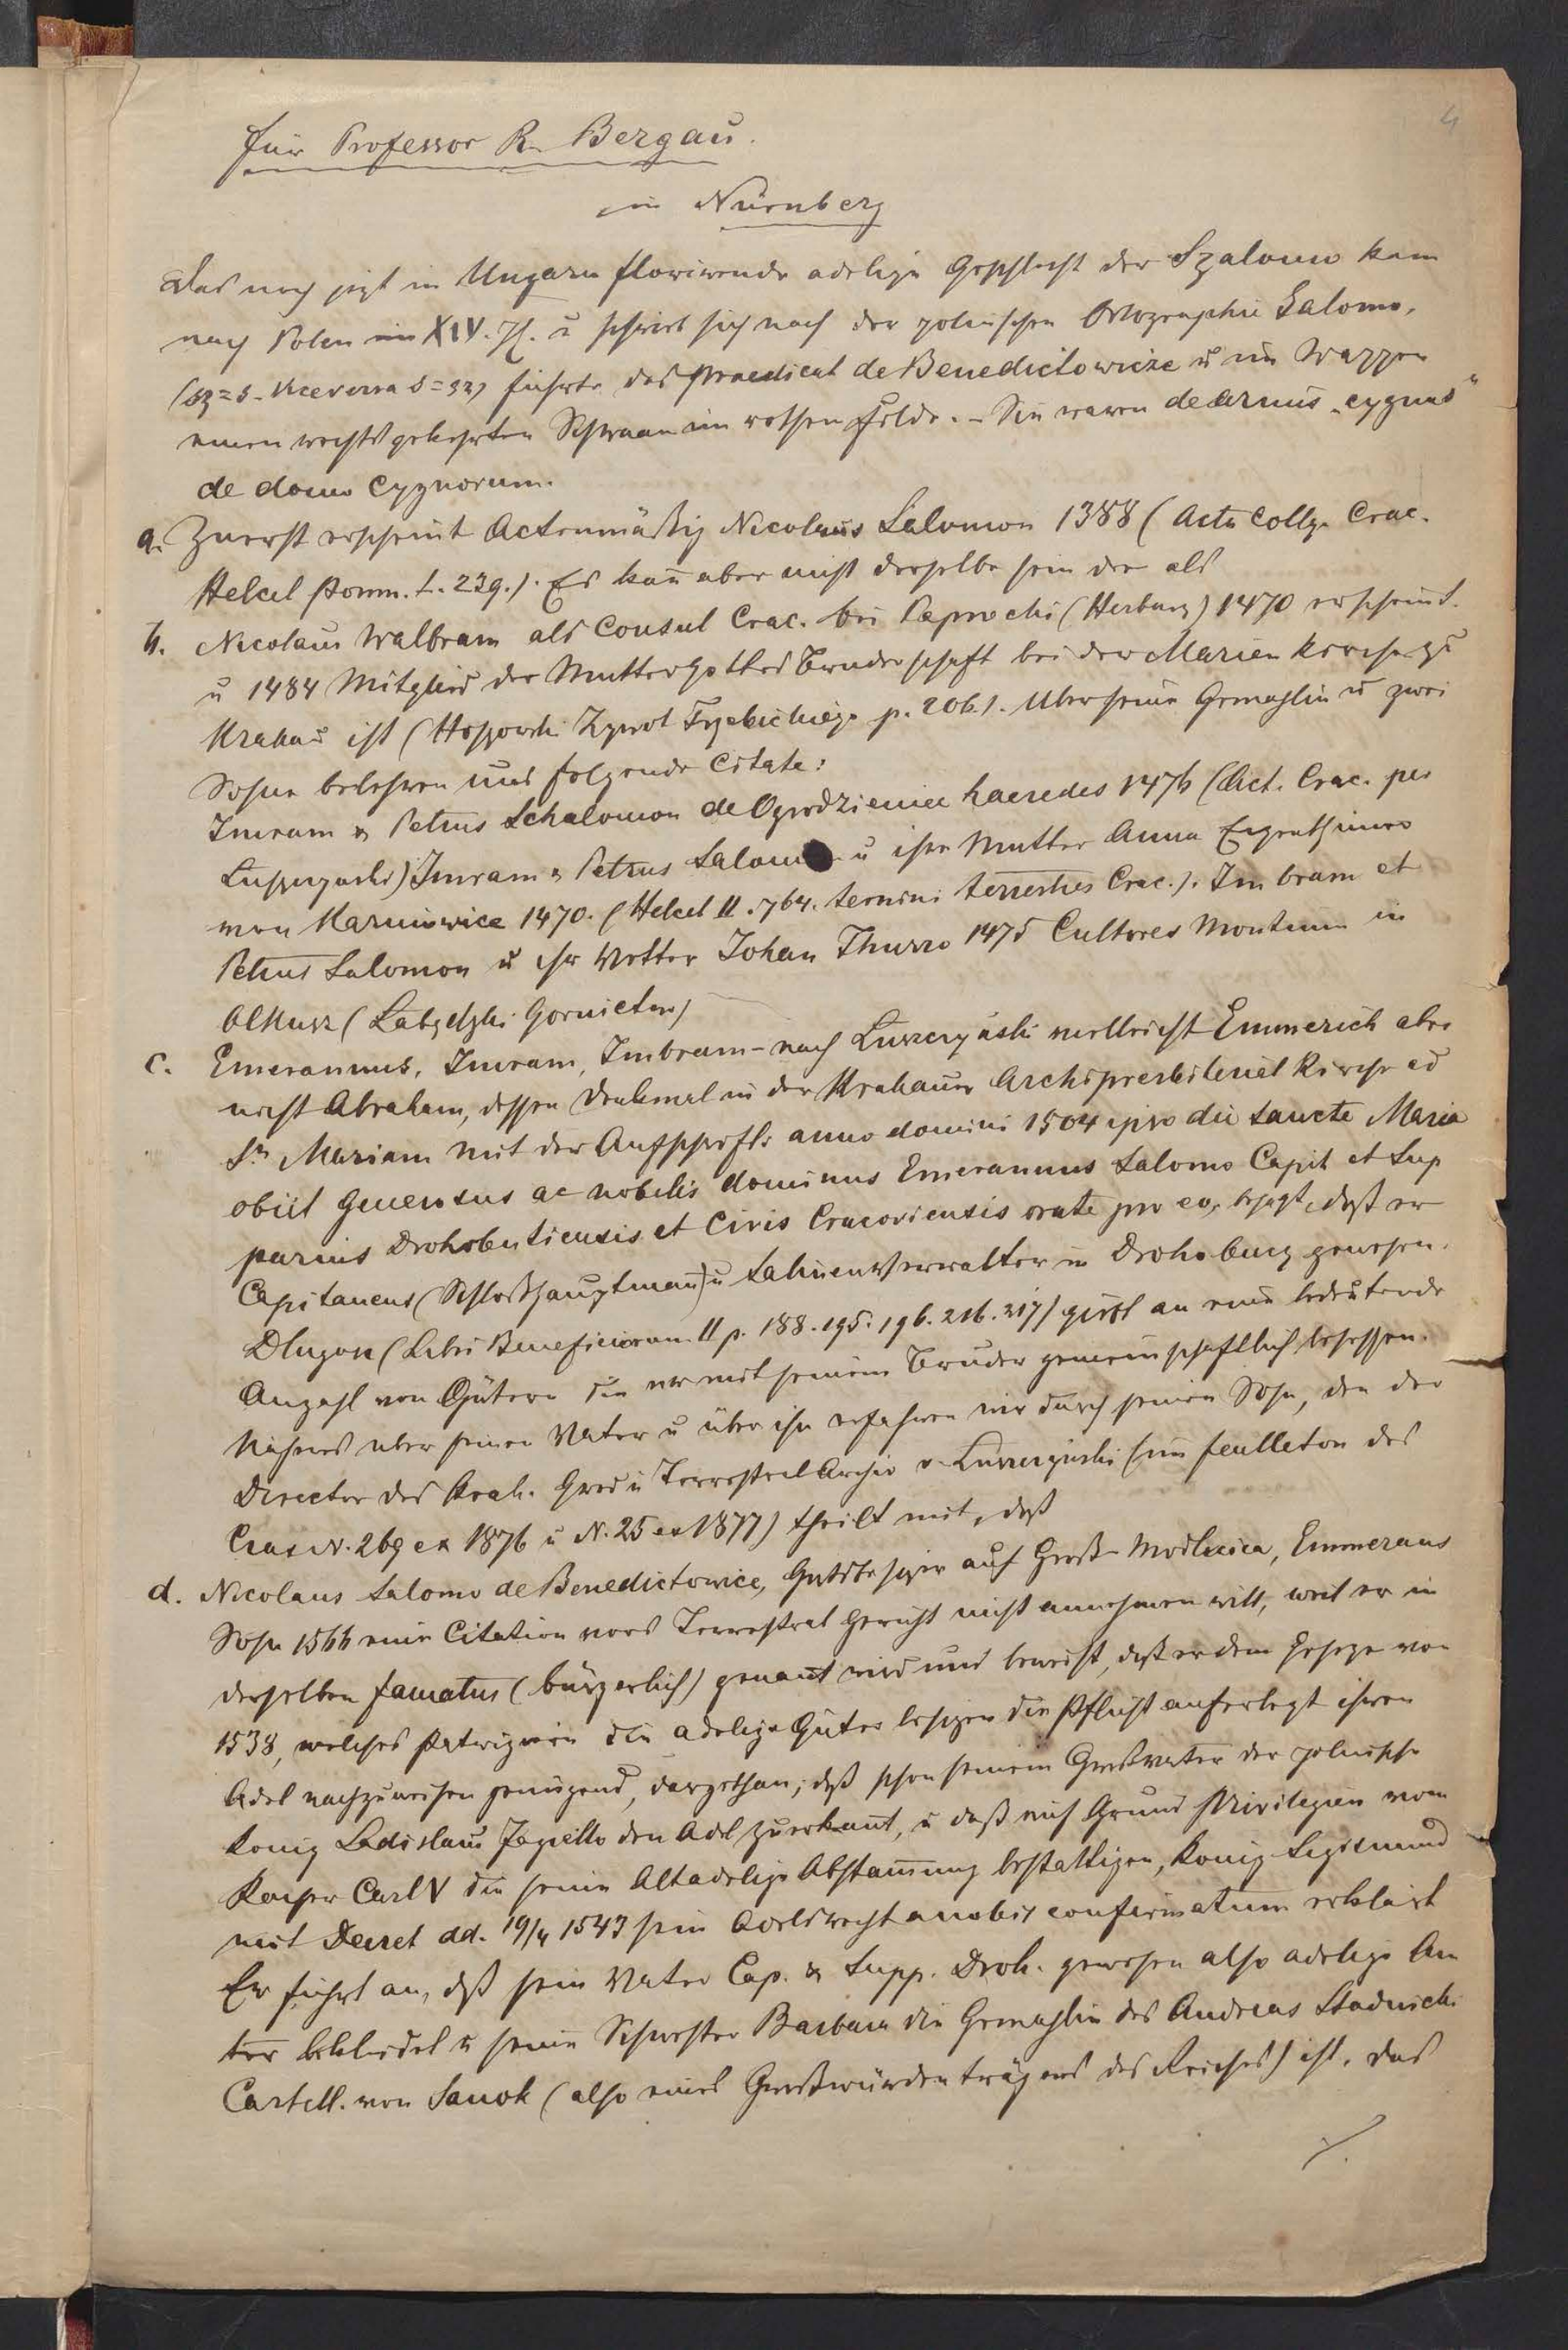 4
für Professor R. Bergau.
in Nürnberg
Das noch jezt in Ungarn florirende adelige Geschlecht der Szalomo kam
nach Polen im XIV. Jh. u schrieb sich nach der polnischen Ortographie Salomo,
(sz=s - viceversa s=sz) führte das Praedicat de Benedictowicze u im Wappen
einen rechtsgekehrten Schwaan im rothen Felde. - Sie waren de armis „cygnus"
de domo Cygnorum.
a. Zuerst erscheint Actenmäßig Nicolaus Salomon 1388 (Acta Collg. Crac.
Helcel Pomn. t. 239.). Es kañ aber nicht derselbe sein der als
b. Nicolaus Walbram als Consul Crac. bei Paprocki (Herbarz) 1470 erscheint.
u 1484 Mitglied der Muttergottes Bruderschaft bei der Marienkirche zu
Krakau ist (Hoszowski Zywot Trzebickiego p. 206.). Uber seine Gemahlin u zwei
Sohne belehren uns folgende Citate:
Imram & Petrus Schalomon de Ogrodzieniec haeredes 1476 (Act. Crac. per
Luszczynski) Imram & Petrus Salomo u ihre Mutter Anna Eigenthümer
von Karniowice 1470. (Helcel II. 764. termini terrestres Crac.). Imbram et
Petrus Salomon u ihr Vetter Johan Thurzo 1475 Cultores Montium in
Olkusz (Labęcki Gornictwo)
c. Emerannus, Imram, Imbram - nach Luszczynski vielleicht Emmerich aber
nicht Abraham, dessen Denkmal in der Krakauer Archipresbiterial Kirche ad
St. Mariam mit der Aufschrift anno domini 1504 ipso die sancte Maria
obiit generosus ac nobilis dominus Emerannus Salomo Capit et Sup
parius Drohobuticensis et Civis Cracoviensis orate pro eo, besagt, daß er
Capitaneus (Schloßhauptmañ) u Salinenverwalter in Drohobucz gewesen.
Dlugosz (Libri Beneficiorum II p. 188. 195. 196. 216. 217) giebt an eine bedeutende
Anzahl von Gütern die er mit seinem Bruder gemeinschaftlich besessen.
Näheres uber seinen Vater u über ihn erfahren wir durch seinen Sohn, den der
Director des Krak. Grod u Terrestral Archiv v. Luszczynski (im feulleton des
Czas N. 269 ex 1876 u N. 25 ex 1877) theilt mit, daß
d. Nicolaus Salomo de Benedictowice, Gutsbesizer auf Groß-Modlnica, Emmerans
Sohn 1566 eine Citation vors Terrestral Gericht nicht annehmen will, weil er in
derselben famatus (bürgerlich) genañt wird und beweist, daß er dem Geseze von
1538, welches Patriziern die adelige Güter besizen die Pflicht auferlegt ihren
Adel nachzuweisen genügend, dargethan; daß schon seinem Großvater der polnische
König Ladislaus Jagiello den Adel zuerkañt, u daß auf Grund Privilegien vom
Kaiser Carl V die seine Altadelige Abstam̃ung bestattigen, König Sigismund
mit Decret dd. 19/4 1543 sein Adelsrecht a nobis confirmatum erklärt
Er führt an, daß sein Vater Cap. & Supp. Droh. gewesen also adelige Äm
ter bekleidet u seine Schwester Barbara die Gemahlin des Andreas Stadnicki
Castell. von Sanok (also eines Großwürdenträgers des Reiches) ist. Das
./.